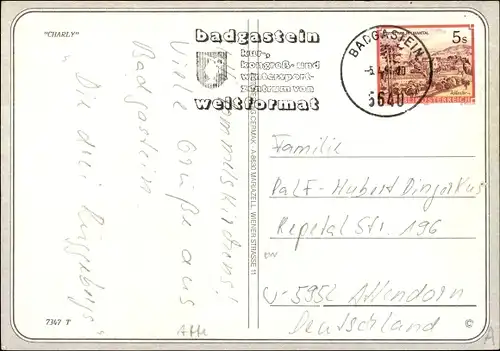 "CHARLY"
badgastein
kur-,
kongreß- und
wintersport-
zentrum von
weltformat
BADGASTEIN
5640
5s
REPUBLIK ÖSTERREICH
Viele Grüße aus
Badgastein.
"Die drei
Familie
Ralf-Hubert Dingerkus
Repetal Str. 196
D-5952 Attendorn
Deutschland
MARIAZELL, WIENERSTRASSE 11
7347 T
©
A